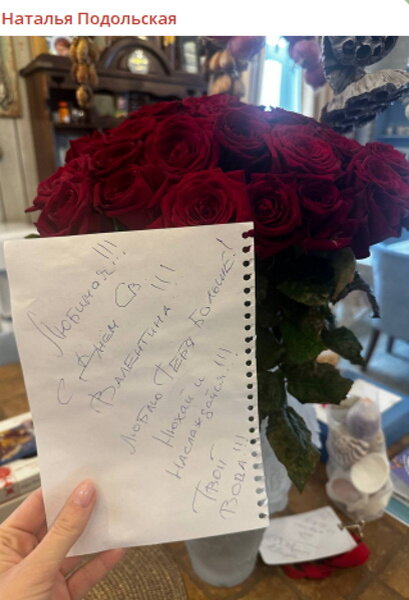 Наталья Подольская
Любимая!!!
С Днём Св
Валентина!!!
Люблю Тебя больше!
Нюхай и
наслаждайся!!!
Твой
Вова!!!